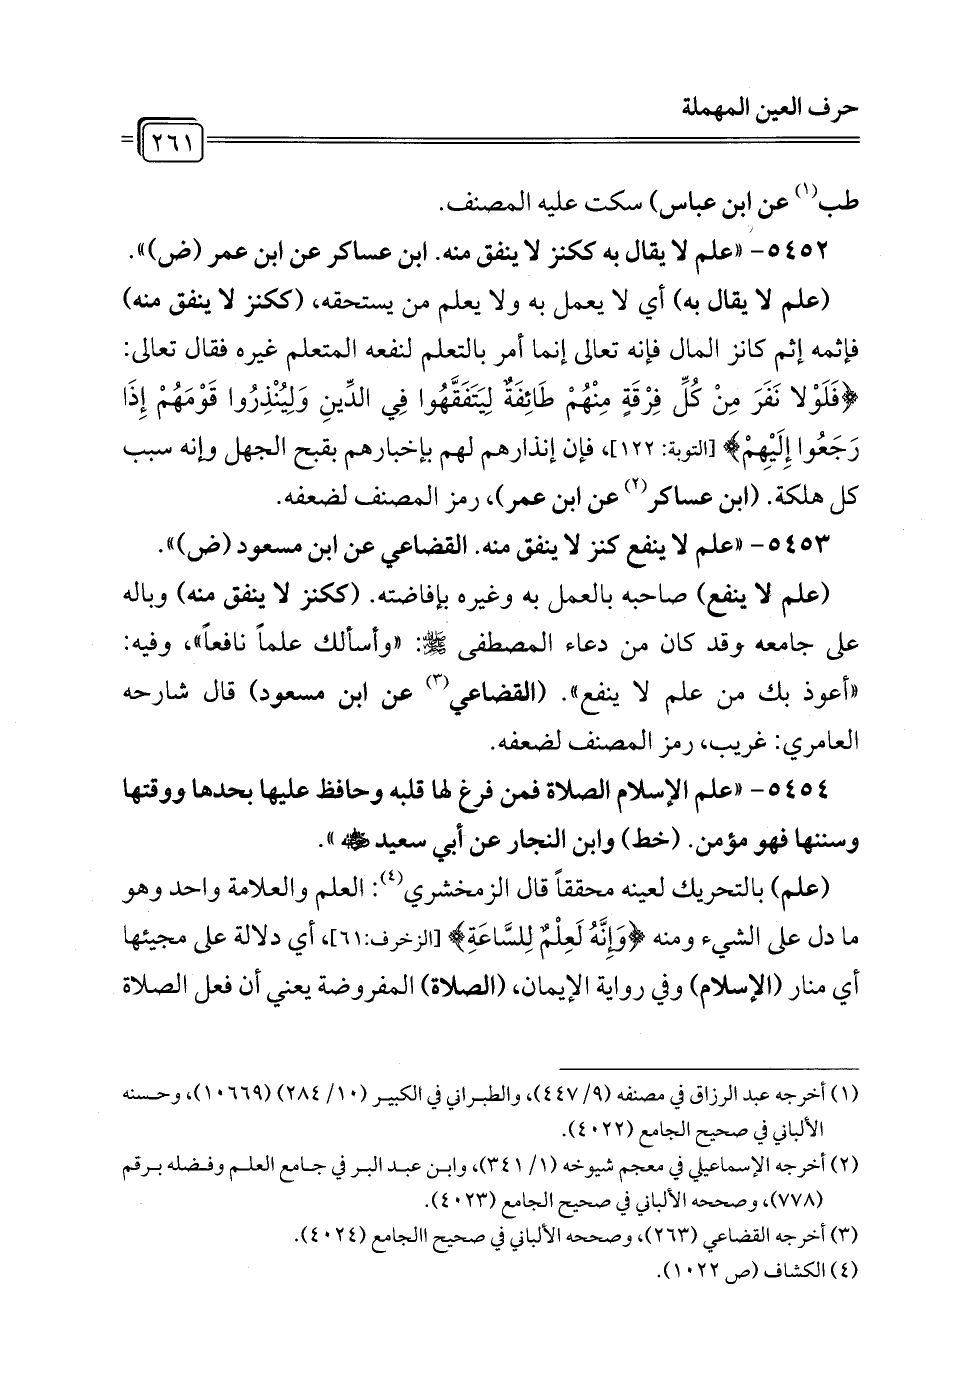 حرف العين المهملة
٢٦١
طب(١) عن ابن عباس) سكت عليه المصنف.
٥٤٥٢- «علم لا يقال به ككنز لا ينفق منه. ابن عساكر عن ابن عمر (ض)».
(علم لا يقال به) أي لا يعمل به ولا يعلم من يستحقه، (ككنز لا ينفق منه)
فإثمه إثم كانز المال فإنه تعالى إنما أمر بالتعلم لنفعه المتعلم غيره فقال تعالى:
﴿فَلَوْلا نَفَرَ مِنْ كُلِّ فِرْقَةٍ مِنْهُمْ طَائِفَةٌ لِيَتَفَقَّهُوا فِي الدِّينِ وَلِيُنْذِرُوا قَوْمَهُمْ إِذَا
رَجَعُوا إِلَيْهِمْ﴾ [التوبة: ١٢٢]، فإن إنذارهم لهم بإخبارهم بقبح الجهل وإنه سبب
كل هلكة. (ابن عساكر(٢) عن ابن عمر)، رمز المصنف لضعفه.
٥٤٥٣- «علم لا ينفع كنز لا ينفق منه. القضاعي عن ابن مسعود (ض)».
(علم لا ينفع) صاحبه بالعمل به وغيره بإفاضته. (ككنز لا ينفق منه) وباله
على جامعه وقد كان من دعاء المصطفى ﷺ: «وأسألك علماً نافعاً»، وفيه:
«أعوذ بك من علم لا ينفع». (القضاعي(٣) عن ابن مسعود) قال شارحه
العامري: غريب، رمز المصنف لضعفه.
٥٤٥٤- «علم الإسلام الصلاة فمن فرغ لها قلبه وحافظ عليها بحدها ووقتها
وسننها فهو مؤمن. (خط) وابن النجار عن أبي سعيد ﷺ».
(علم) بالتحريك لعينه محققاً قال الزمخشري(٤): العلم والعلامة واحد وهو
ما دل على الشيء ومنه ﴿وَإِنَّهُ لَعِلْمٌ لِلسَّاعَةِ﴾ [الزخرف:٦١]، أي دلالة على مجيئها
أي منار (الإسلام) وفي رواية الإيمان، (الصلاة) المفروضة يعني أن فعل الصلاة
(١) أخرجه عبد الرزاق في مصنفه (٩/ ٤٤٧)، والطبراني في الكبير (١٠/ ٢٨٤) (١٠٦٦٩)، وحسنه
الألباني في صحيح الجامع (٤٠٢٢).
(٢) أخرجه الإسماعيلي في معجم شيوخه (١/ ٣٤١)، وابن عبد البر في جامع العلم وفضله برقم
(٧٧٨)، وصححه الألباني في صحيح الجامع (٤٠٢٣).
(٣) أخرجه القضاعي (٢٦٣)، وصححه الألباني في صحيح االجامع (٤٠٢٤).
(٤) الكشاف (ص ١٠٢٢).